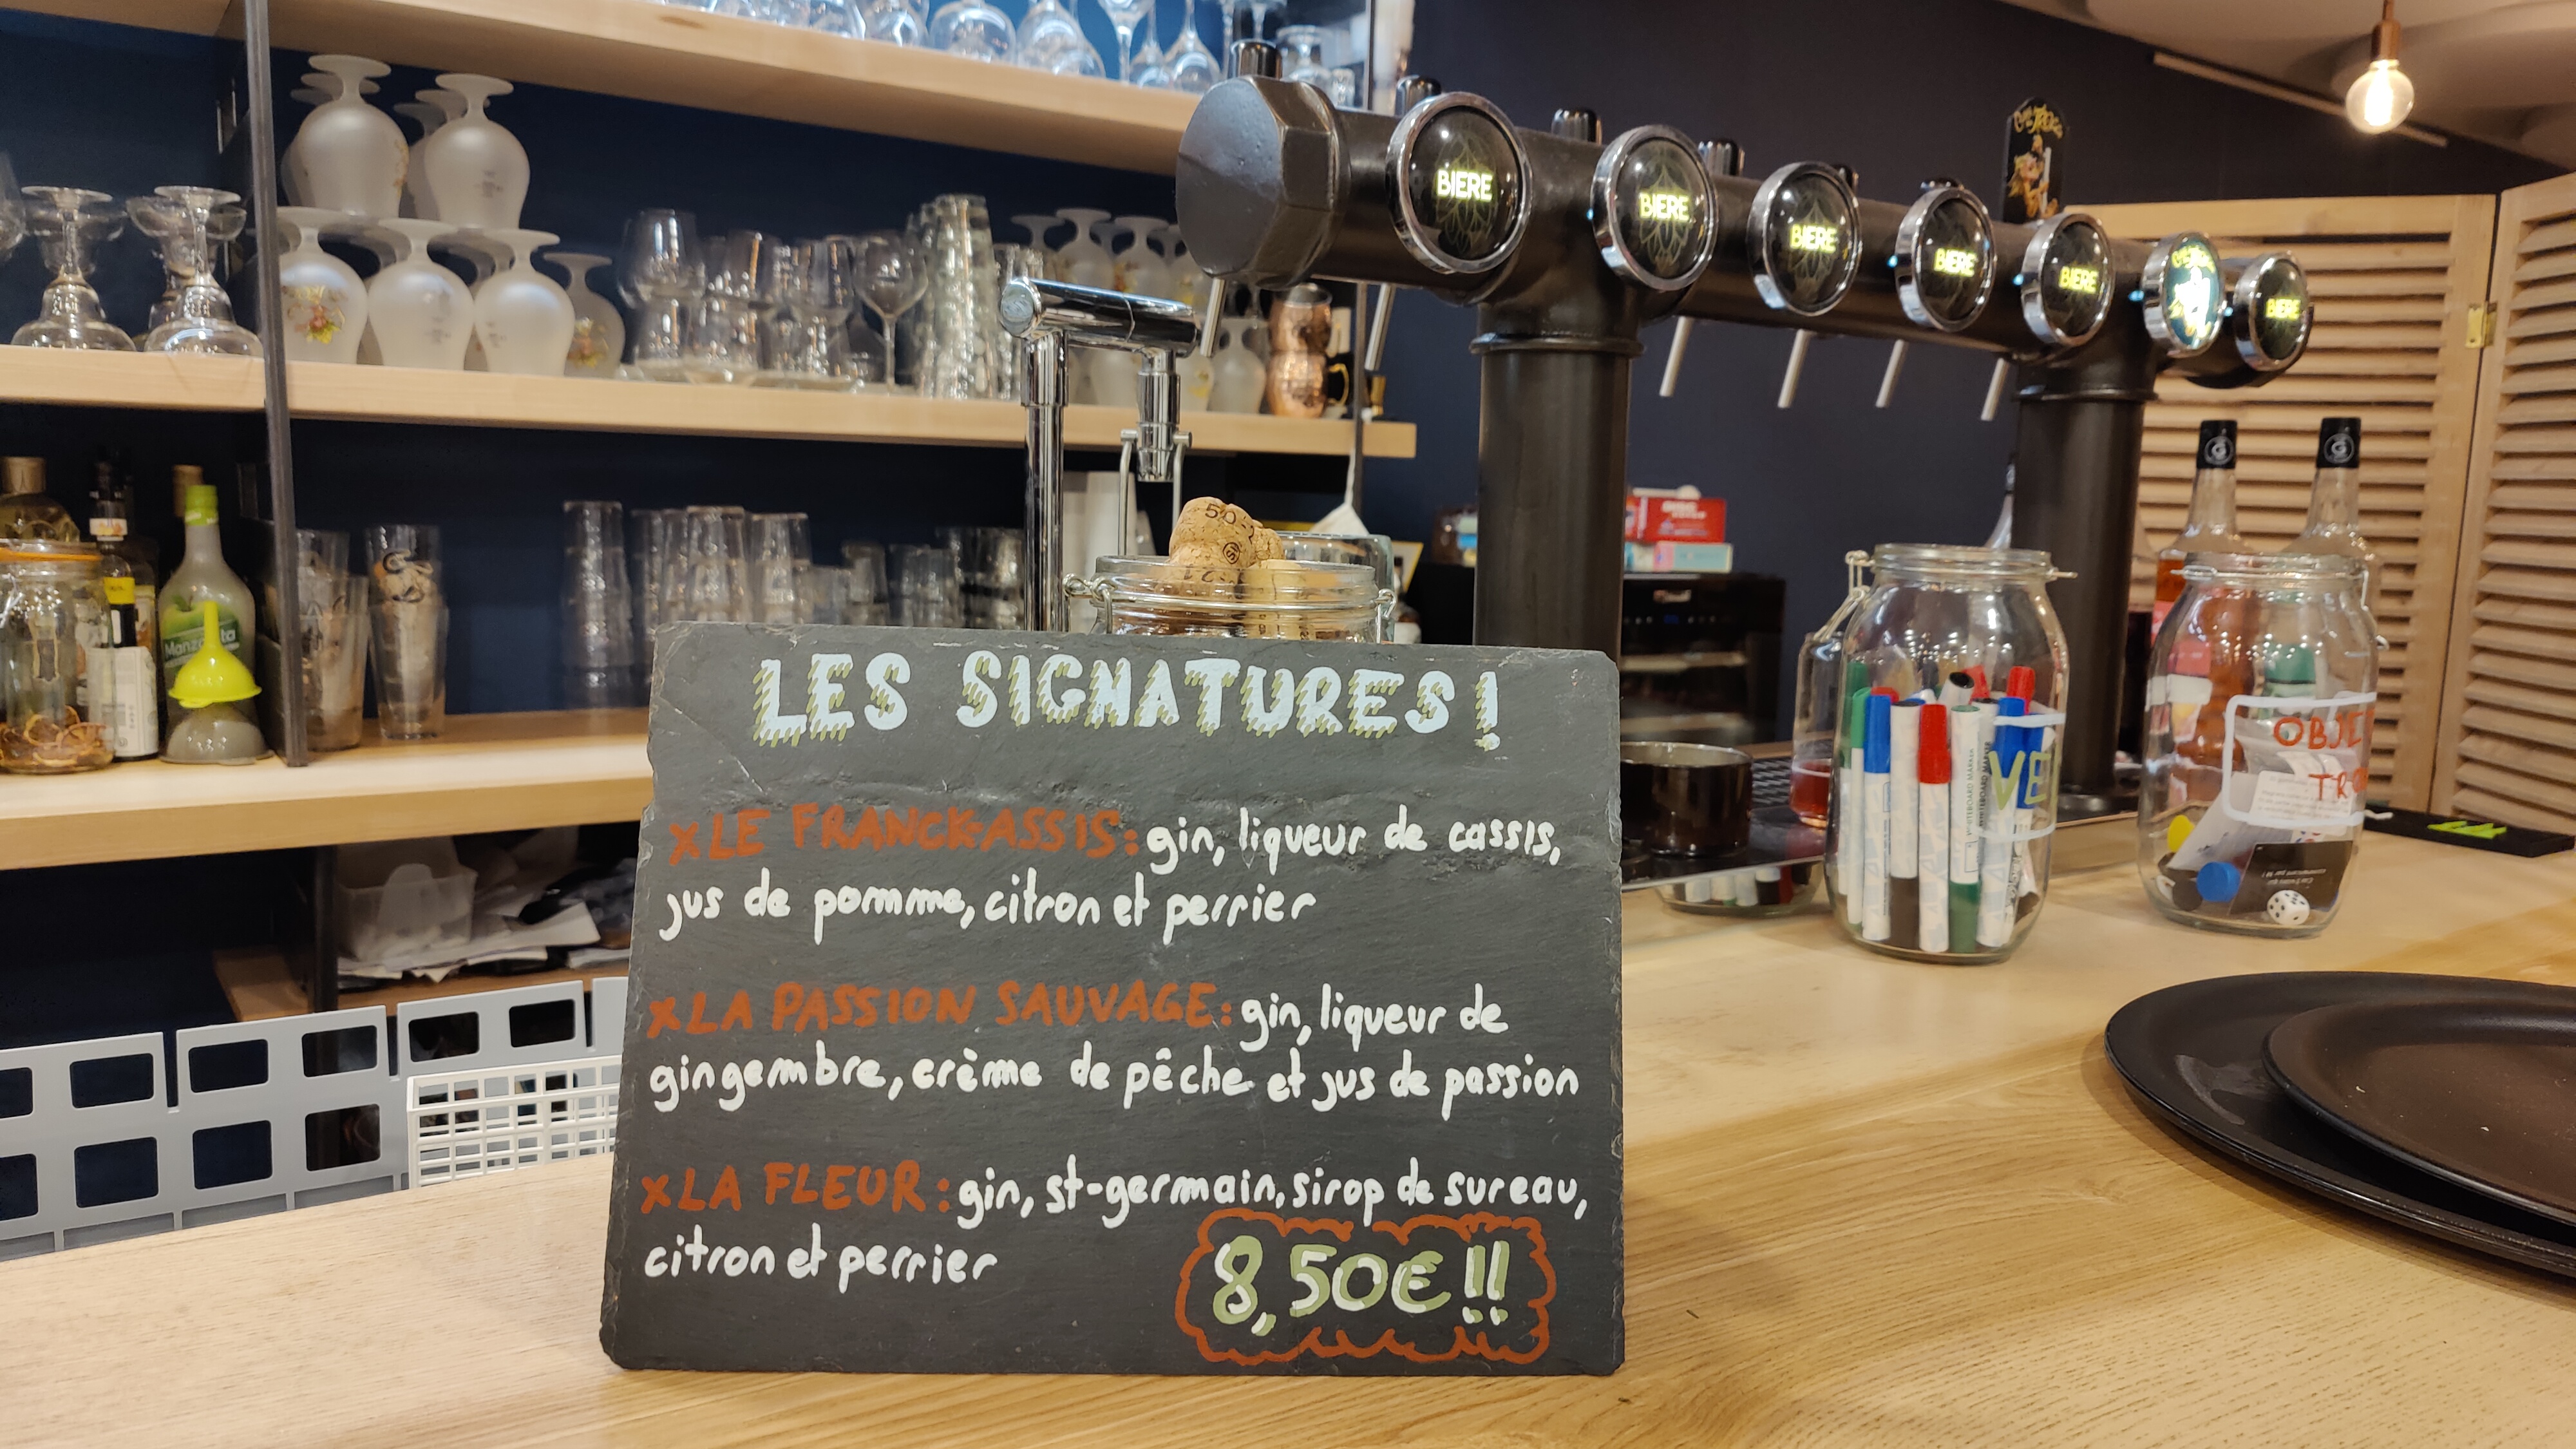 BIERE
BIERE
BIERE
BIERE
BIERE
BIERE
50
LES SIGNATURES!
x LE FRANCK-ASSIS: gin, liqueur de cassis,
jus de pomme, citron et perrier
x LA PASSION SAUVAGE: gin, liqueur de
gingembre, crème de pêche et jus de passion
x LA FLEUR: gin, st-germain, sirop de sureau,
citron et perrier
8,50€!!
WHITEBOARD MARKER